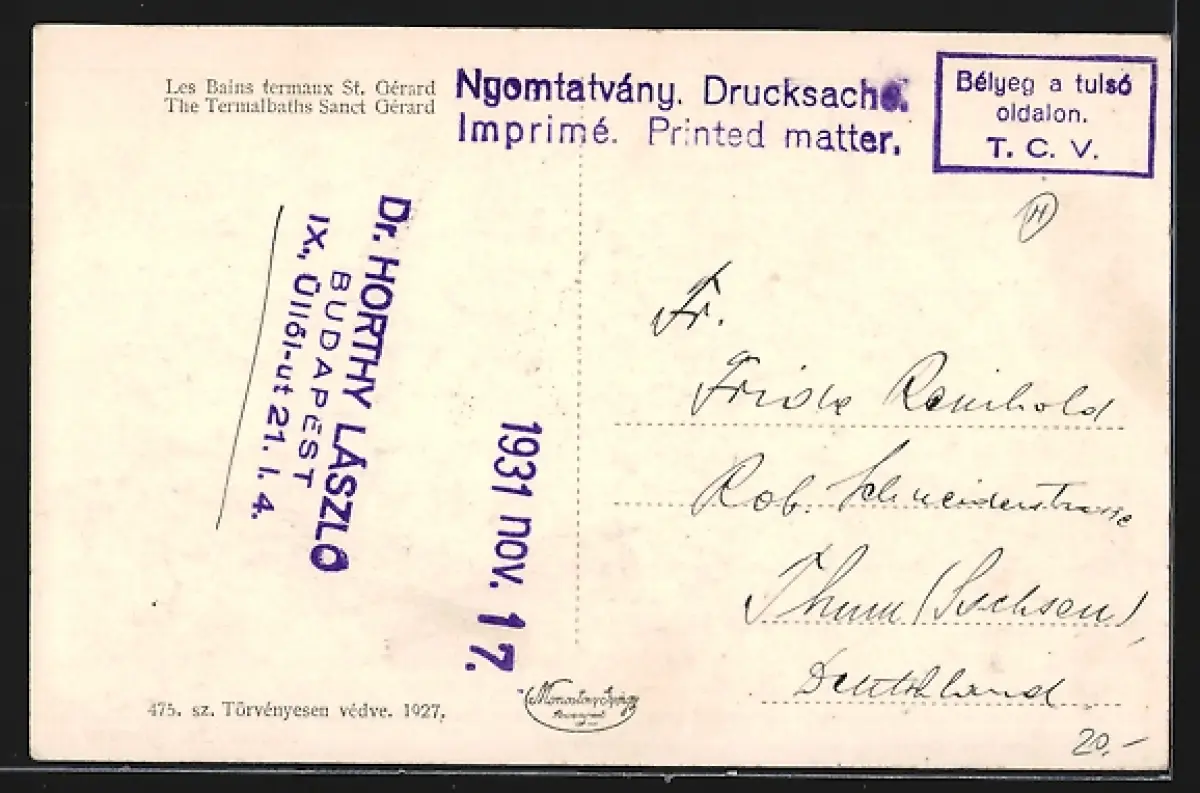 Les Bains termaux St. Gérard
The Termalbaths Sanct Gérard
Nyomtatvány. Drucksache.
Imprimé. Printed matter.
Bélyeg a tulsó
oldalon.
T. C. V.
H
Dr. HORTHY LÁSZLÓ
BUDAPEST
IX., Üllői-ut 21. I. 4.
1931 nov. 17.
Fr.
Frida Reinhold
Rob. Schneiderstrasse
Thum (Sachsen),
Deutschland
475. sz. Törvényesen védve. 1927.
20.-